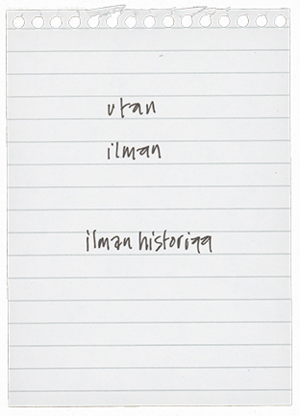 utan
ilman
ilman historiaa